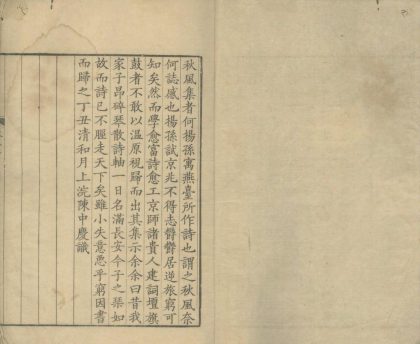 秋風集者何揚孫寓燕臺所作詩也謂之秋風奈
何誌感也揚孫試京兆不得志鬱鬱居逆旅窮可
知矣然而學愈富詩愈工京師諸貴人建詞壇旗
鼓者不敢以溫原視歸而出其集示余余曰昔我
家子昂碎琴散詩軸一日名滿長安今子之琹如
故而詩已不脛走天下矣雖小失意悪乎窮因書
而歸之丁丑清和月上浣陳申慶識